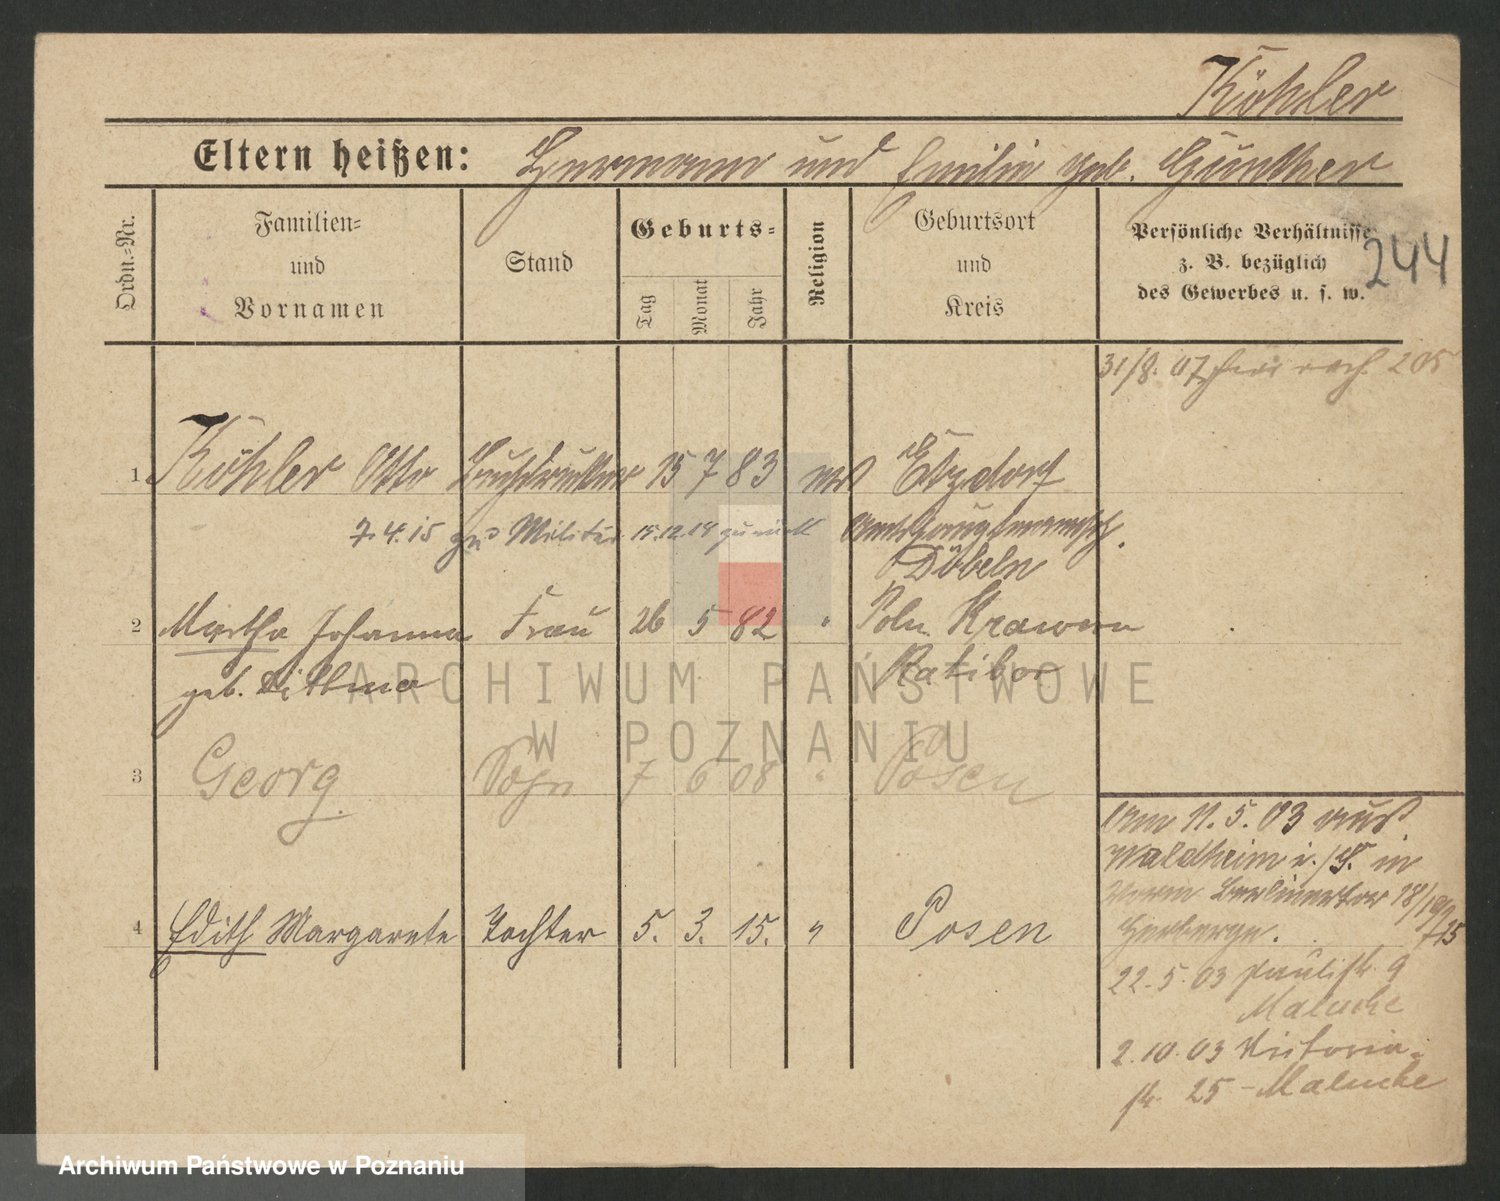 Köhler
Eltern heißen: Hermann und Emilie geb. Günther
Ordn.-Nr.
Familien-
und
Vornamen
Stand
Geburts-
Tag
Monat
Jahr
Religion
Geburtsort
und
Kreis
Persönliche Verhältnisse
z. B. bezüglich
des Gewerbes u. s. w.
244
31/8. 07
1 Köhler Otto Buchdrucker 15 7 83 Etzdorf
7.4.15 zum Militär 15.12.14 zurück Amtshauptmannsch.
Döbeln
2 Martha Johanna Frau 26 5 82 " Poln. Krawarn
geb. Ratibor
3 Georg Sohn 7 6 08 " Posen
Am 11.5.03 aus
Waldheim i./S. in
Berlinertor 18/19
4 Edith Margarete Tochter 5. 3. 15. " Posen
Herberge.
22.5.03 Paulistr. 9
Maluche
2.10.03 Victoria-
str. 25 - Maluche
ARCHIWUM PAŃSTWOWE
W POZNANIU
Archiwum Państwowe w Poznaniu